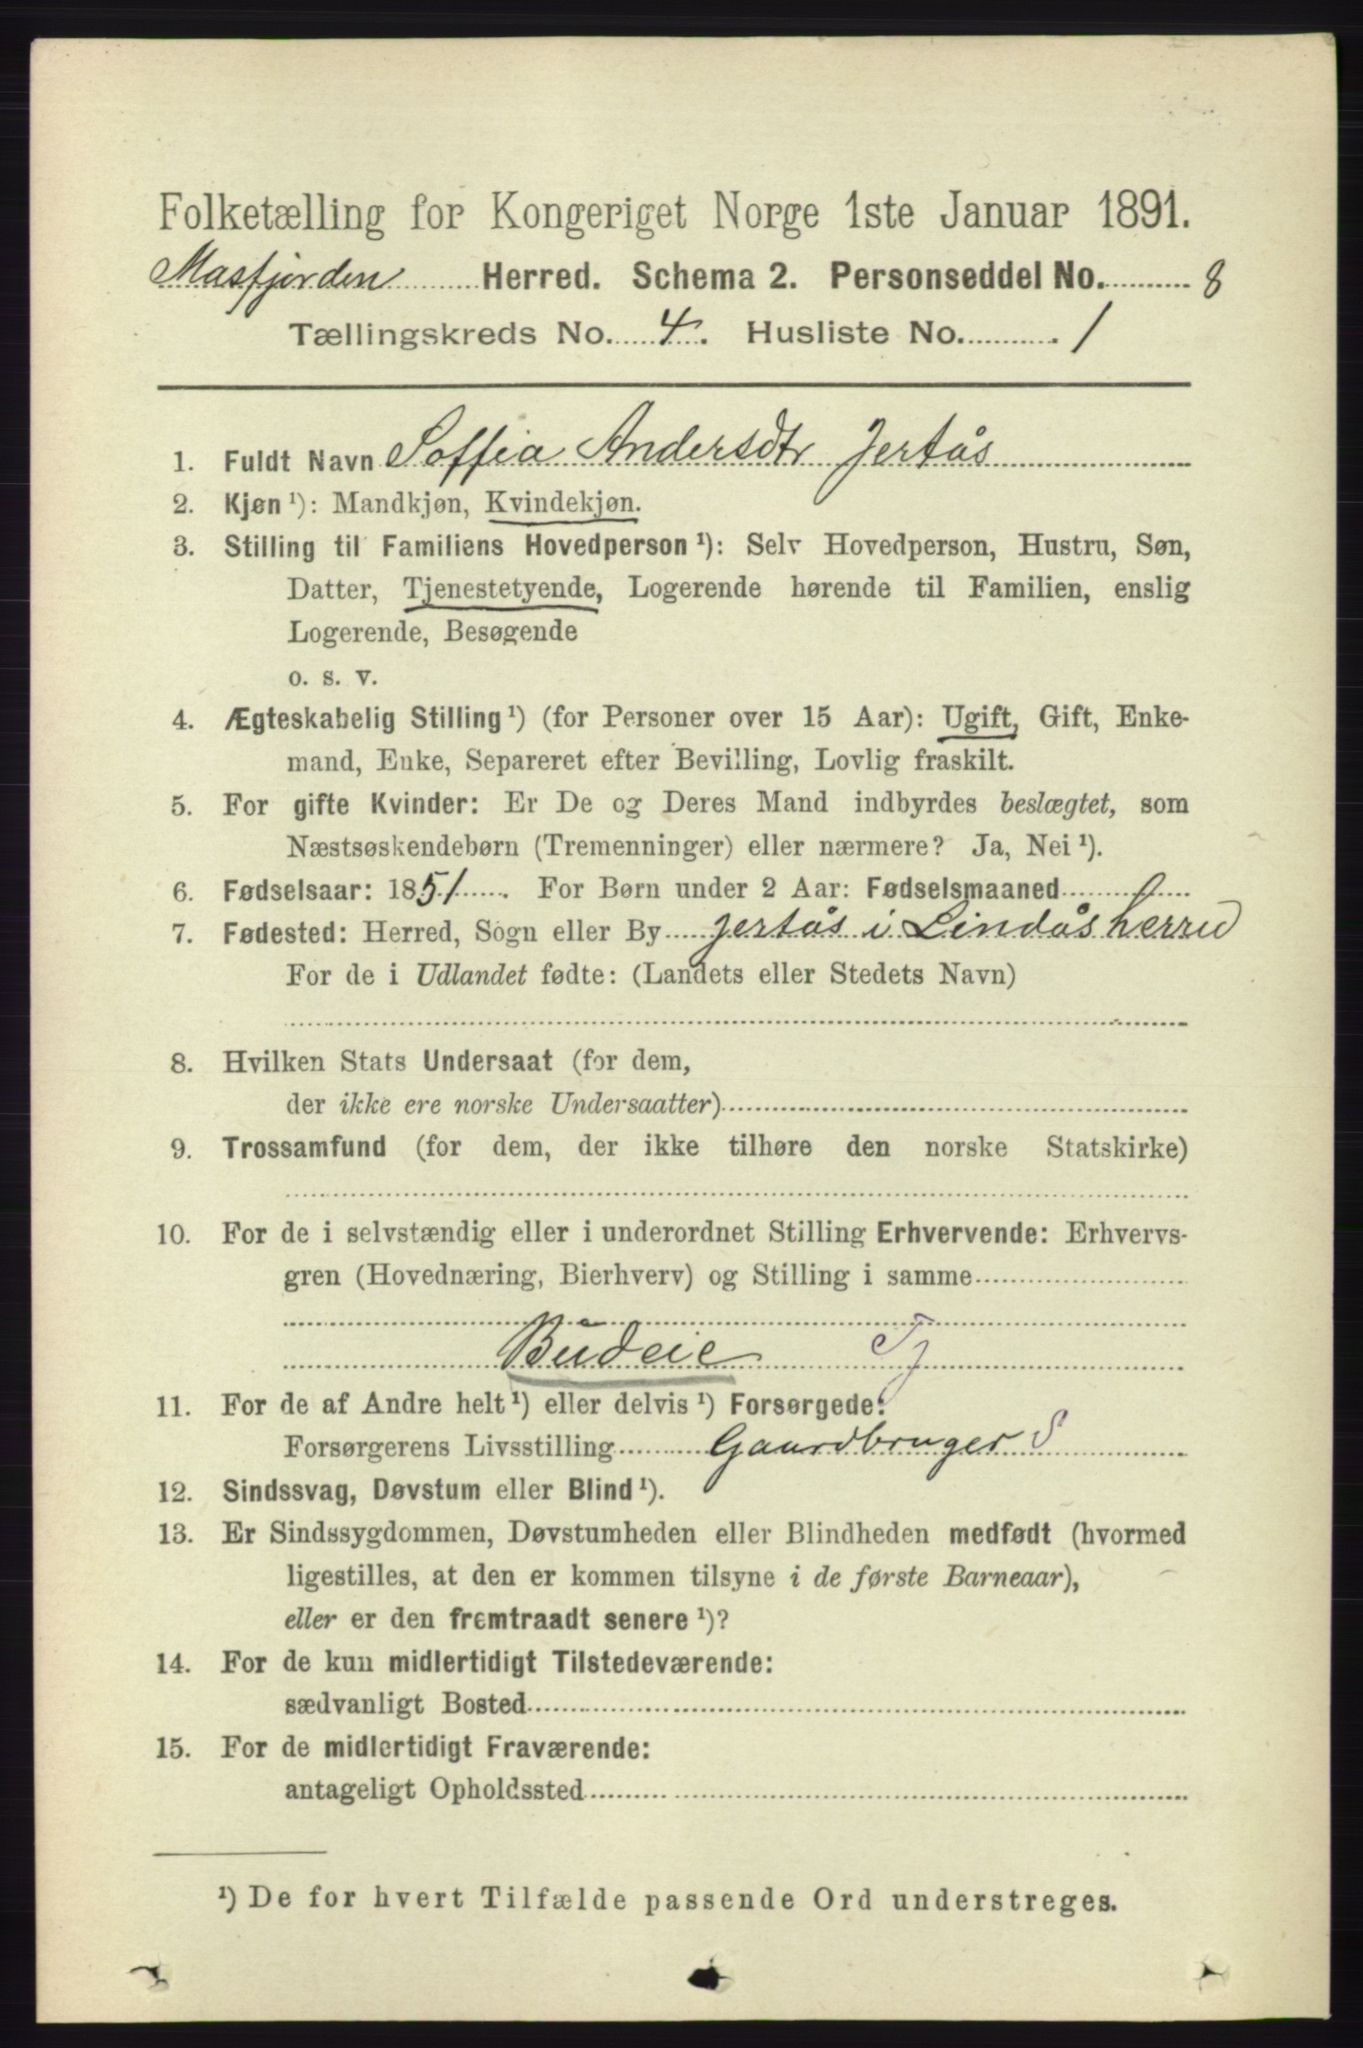 Folketælling for Kongeriget Norge 1ste Januar 1891.
Masfjorden Herred. Schema 2. Personseddel No. 8
Tællingskreds No. 4. Husliste No. 1
1. Fuldt Navn Soffia Andersdtr Jertås
2. Kjøn ¹): Mandkjøn, Kvindekjøn.
3. Stilling til Familiens Hovedperson ¹): Selv Hovedperson, Hustru, Søn,
Datter, Tjenestetyende, Logerende hørende til Familien, enslig
Logerende, Besøgende
o. s. v.
4. Ægteskabelig Stilling ¹) (for Personer over 15 Aar): Ugift, Gift, Enke-
mand, Enke, Separeret efter Bevilling, Lovlig fraskilt.
5. For gifte Kvinder: Er De og Deres Mand indbyrdes beslægtet, som
Næstsøskendebørn (Tremenninger) eller nærmere? Ja, Nei ¹).
6. Fødselsaar: 1851. For Børn under 2 Aar: Fødselsmaaned
7. Fødested: Herred, Sogn eller By Jertås i Lindås herred
For de i Udlandet fødte: (Landets eller Stedets Navn)
8. Hvilken Stats Undersaat (for dem,
der ikke ere norske Undersaatter)
9. Trossamfund (for dem, der ikke tilhøre den norske Statskirke)
10. For de i selvstændig eller i underordnet Stilling Erhvervende: Erhvervs-
gren (Hovednæring, Bierhverv) og Stilling i samme
Budeie Tj
11. For de af Andre helt ¹) eller delvis ¹) Forsørgede:
Forsørgerens Livsstilling Gaardbruger S
12. Sindssvag, Døvstum eller Blind ¹).
13. Er Sindssygdommen, Døvstumheden eller Blindheden medfødt (hvormed
ligestilles, at den er kommen tilsyne i de første Barneaar),
eller er den fremtraadt senere ¹)?
14. For de kun midlertidigt Tilstedeværende:
sædvanligt Bosted
15. For de midlertidigt Fraværende:
antageligt Opholdssted
¹) De for hvert Tilfælde passende Ord understreges.